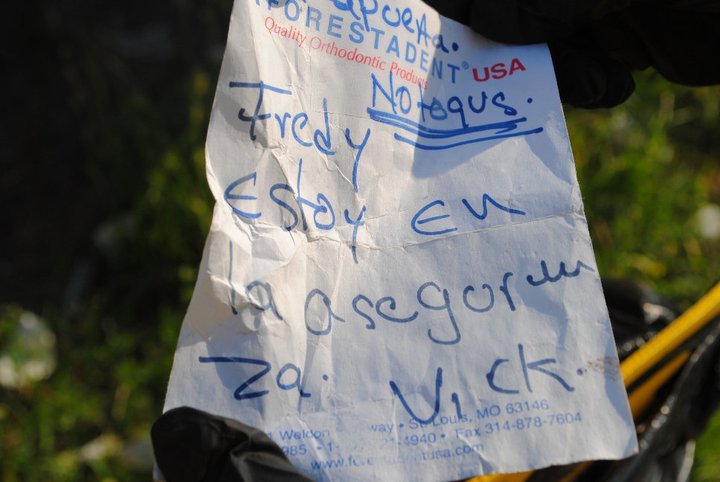 apuerta.
FORESTADENT® USA
Quality Orthodontic Products
No toqus.
Fredy
Estoy en
la asegoran
za. Vick.
Weldon way • St. Louis, MO 63146
985 • 4940 • Fax 314-878-7604
www.fo entusa.com